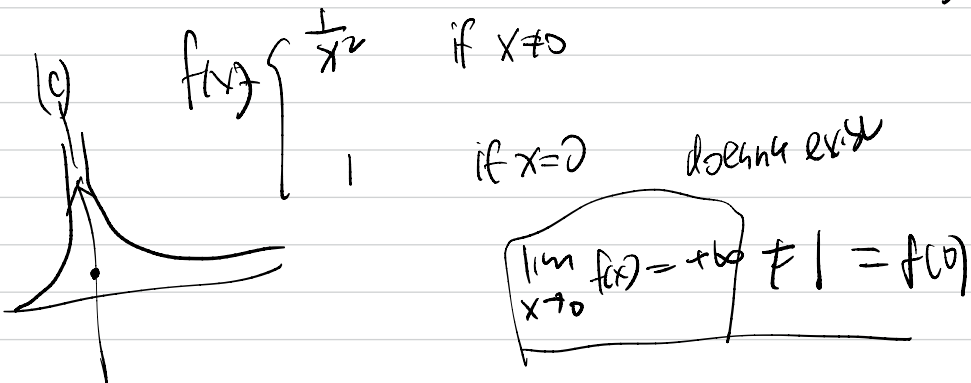 (c) f(x) { 1/x² if x≠0
1 if x=0 doesn't exist
lim x→0 f(x) = +∞ ≠ 1 = f(0)